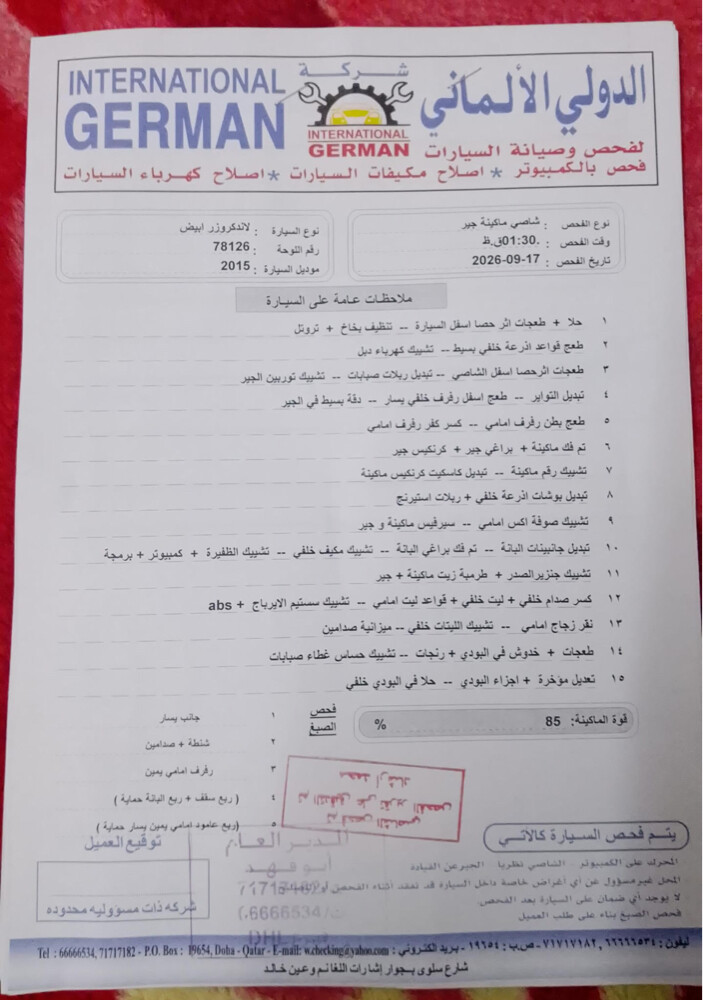 INTERNATIONAL
GERMAN
شركة
INTERNATIONAL
GERMAN
الدولي الألماني
لفحص وصيانة السيارات
فحص بالكمبيوتر * اصلاح مكيفات السيارات * اصلاح كهرباء السيارات
نوع الفحص : شاصي ماكينة جير
وقت الفحص : 01:30.ق.ظ
تاريخ الفحص : 2026-09-17
نوع السيارة : لاندكروزر ابيض
رقم اللوحة : 78126
موديل السيارة : 2015
ملاحظات عامة على السيارة
١ حلا + طعجات اثر حصا اسفل السيارة -- تنظيف بخاخ + تروتل
٢ طعج قواعد اذرعة خلفي بسيط -- تشييك كهرباء دبل
٣ طعجات اثرحصا اسفل الشاصي -- تبديل ربلات صبابات -- تشييك توربين الجير
٤ تبديل التواير -- طعج اسفل رفرف خلفي يسار -- دقة بسيط في الجير
٥ طعج بطن رفرف امامي -- كسر كفر رفرف امامي
٦ تم فك ماكينة + براغي جير + كرنكيس جير
٧ تشييك رقم ماكينة -- تبديل كاسكيت كرنكيس ماكينة
٨ تبديل بوشات اذرعة خلفي + ربلات استيرنج
٩ تشييك صوفة اكس امامي -- سيرفيس ماكينة و جير
١٠ تبديل جانبينات البانة -- تم فك براغي البانة -- تشييك مكيف خلفي -- تشييك الظفيرة + كمبيوتر + برمجة
١١ تشييك جنزيرالصدر + طرمبة زيت ماكينة + جير
١٢ كسر صدام خلفي + ليت خلفي + قواعد ليت امامي -- تشييك سستيم الايرباج + abs
١٣ نقر زجاج امامي -- تشييك الليتات خلفي -- ميزانية صدامين
١٤ طعجات + خدوش في البودي + رنجات -- تشييك حساس غطاء صبابات
١٥ تعديل مؤخرة + اجزاء البودي -- حلا في البودي خلفي
قوة الماكينة: 85 %
فحص الصبغ
١ جانب يسار
٢ شنطة + صدامين
٣ رفرف امامي يمين
٤ ( ربع سقف + ربع البانة حماية )
٥ (ربع عامود امامي يمين يسار حماية )
تم فحص الشاصي
تم التدقيق على تقرير الفحص
محمد ارشاد
يتم فحص السيارة كالآتي
المحرك على الكمبيوتر - الشاصي نظريا - الجير عن القيادة
المحل غير مسؤول عن أي أغراض خاصة داخل السيارة قد تفقد أثناء الفحص
لا يوجد أي ضمان على السيارة بعد الفحص
فحص الصبغ بناء على طلب العميل
أبو فهد
توقيع العميل
شركة ذات مسؤولية محدودة
ليفون : ٦٦٦٦٦٥٣٤, ٧١٧١٧١٨٢ - ص.ب : ١٩٦٥٤ - بريد الكتروني : Tel : 66666534, 71717182 - P.O. Box : 19654, Doha - Qatar - E-mail: w.checking@yahoo.com
شارع سلوى بجوار إشارات اللغانم وعين خالد